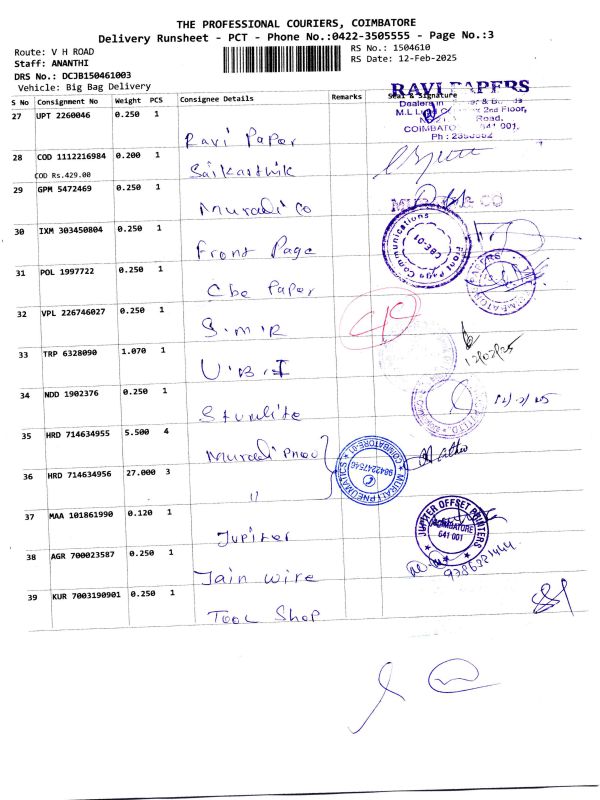 THE PROFESSIONAL COURIERS, COIMBATORE
Delivery Runsheet - PCT - Phone No.:0422-3505555 - Page No.:3
Route: V H ROAD
RS No.: 1504610
Staff: ANANTHI
RS Date: 12-Feb-2025
DRS No.: DCJB150461003
Vehicle: Big Bag Delivery
S No Consignment No Weight PCS Consignee Details Remarks Seal & Signature
RAVI PAPERS
Dealers in
2nd Floor,
Road,
641 001.
27 UPT 2260046 0.250 1
Ravi Paper
28 COD 1112216984 0.200 1
Saikarthik
COD Rs.429.00
29 GPM 5472469 0.250 1
Murali Co
30 IXM 303450804 0.250 1
Front Page
Front Page Communications
CBE-01
31 POL 1997722 0.250 1
Cbe Paper
32 VPL 226746027 0.250 1
S.M.R
33 TRP 6328090 1.070 1
U.B.I
12/02/25
34 NDD 1902376 0.250 1
Stumlite
35 HRD 714634955 5.500 4
Murali Pneu
36 HRD 714634956 27.000 3
"
MURALI PNEUMATICS
9842247566
COIMBATORE-01
37 MAA 101861990 0.120 1
Jupiter
JUPITER OFFSET PRINTERS
COIMBATORE
641 001
38 AGR 700023587 0.250 1
Jain wire
39 KUR 7003190901 0.250 1
Tool Shop